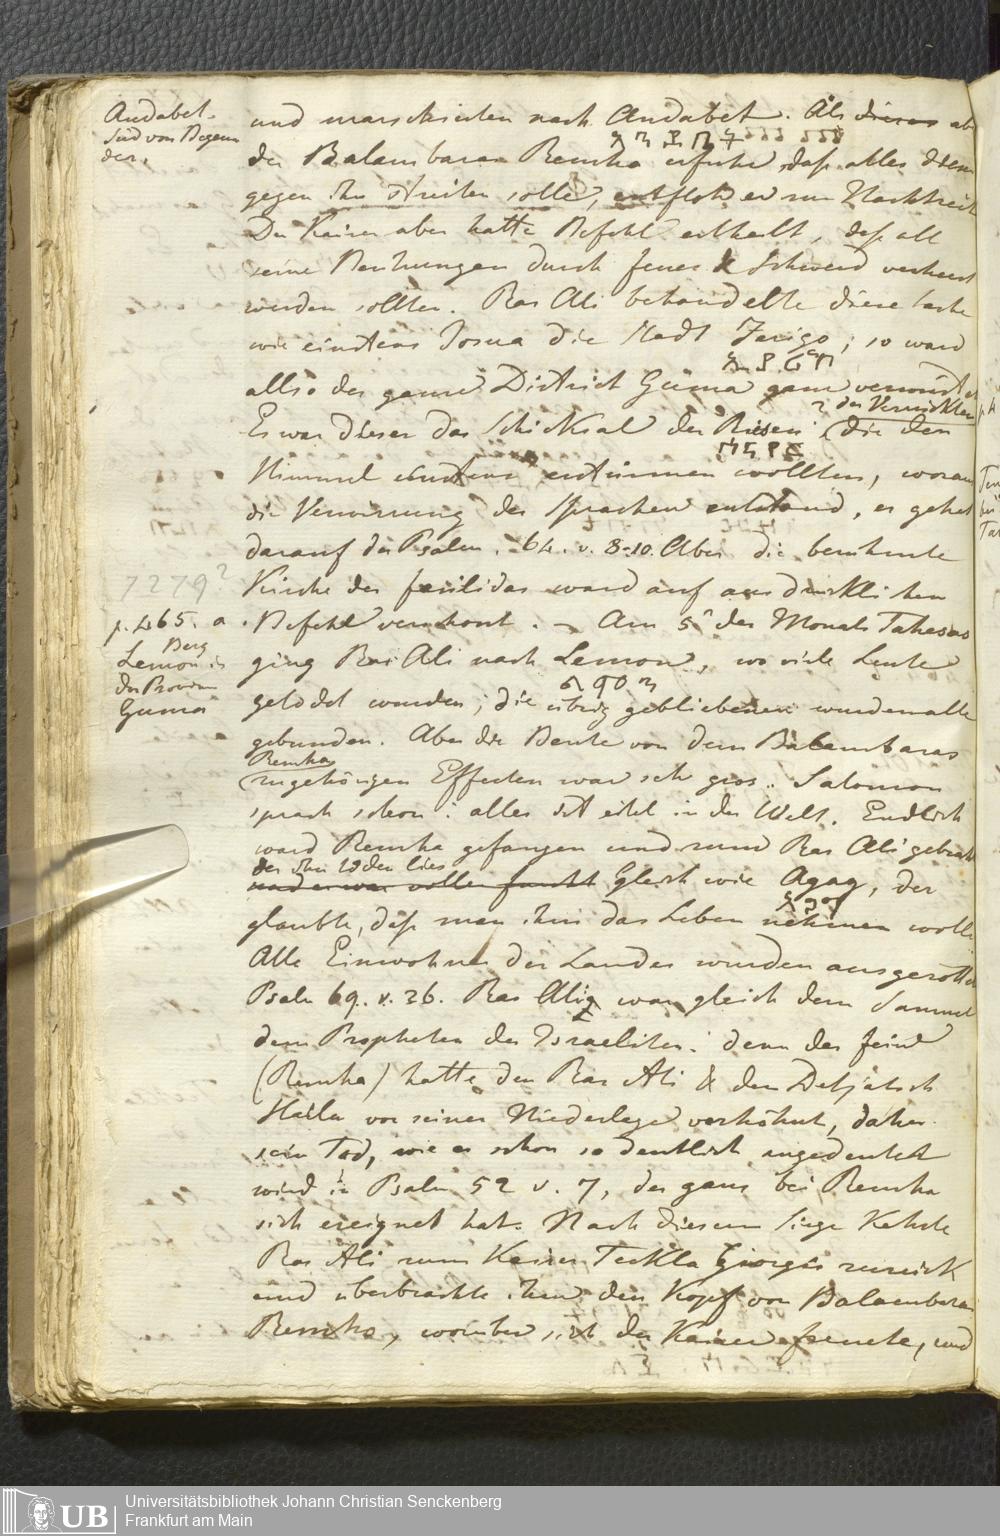 Andabet.
Süd von Begem
der.
und marschirten nach Andabet. Als dieses ab
der Balambaras Remha erfuhr, daß alles
gegen ihn streiten solle, entfloh er zur Nachtzeit
Der Kaiser aber hatte Befehl ertheilt, daß all
seine Besitzungen durch Feuer & Schwerd verheert
werden sollten. Ras Ali behandelte diese
wie einstens Josua die Stadt Jerigo; so ward
also der ganze District Guma ganz verwüstet
Es war dieser das Schicksal der Riesen, die den
Himmel einstens erstürmen wollten, woraus
die Verwirrung der Sprachen entstand, es gehet
darauf der Psalm. 64. v. 8-10. Aber die berühmte
7279?
Kirche des Fasilidas ward auf ausdrücklichen
p. 465. a.
Befehl verschont. – Am 5t des Monats Tahesas
Berg
Lemon in
der Provinz
Guma
ging Ras Ali nach Lemon, wo viele Leute
getödet wurden; die übrig gebliebenen wurden alle
gebunden. Aber die Beute von dem Balambaras
Remha
zugehörigen Effecten war sehr gros. Salomon
sprach schon: alles ist eitel in der Welt. Endlich
ward Remha gefangen und zum Ras Ali gebracht
der ihn töden lies
und er war voller Furcht Gleich wie Agag, der
glaubte, daß man ihm das Leben nehmen wolle
Alle Einwohner des Landes wurden ausgerottet
Psalm 69. v. 26. Ras Ali war gleich dem Samuel
dem Propheten der Israeliten. denn der Feind
(Remha) hatte den Ras Ali & den Detjatsch
Hailu vor seiner Niederlage verhöhnt, daher
sein Tod, wie es schon so deutlich angedeutet
wird in Psalm 52 v. 7, der ganz bei Remha
sich ereignet hat. Nach diesem Siege kehrte
Ras Ali zum Kaiser Teckla Giorgis zurück
und überbrachte ihm den Kopf von Balambaras
Remha, worüber sich der Kaiser freute, und
UB
Universitätsbibliothek Johann Christian Senckenberg
Frankfurt am Main